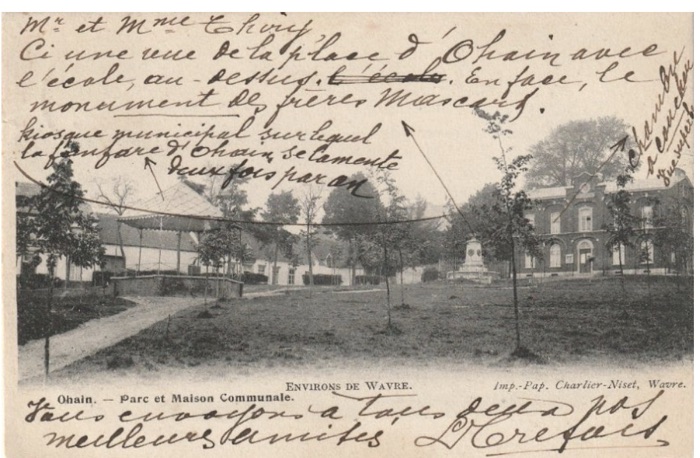 Mr et Mme Thiry,
Ci une vue de la place d'Ohain avec
l'école, au-dessus. l'école. En face, le
monument des frères Mascart.
kiosque municipal sur lequel
la fanfare d'Ohain se lamente
deux fois par an
chambre
à coucher
Environs de Wavre.
Imp.-Pap. Charlier-Niset, Wavre.
Ohain. — Parc et Maison Communale.
Vous envoyons à tous deux nos
meilleures amitiés